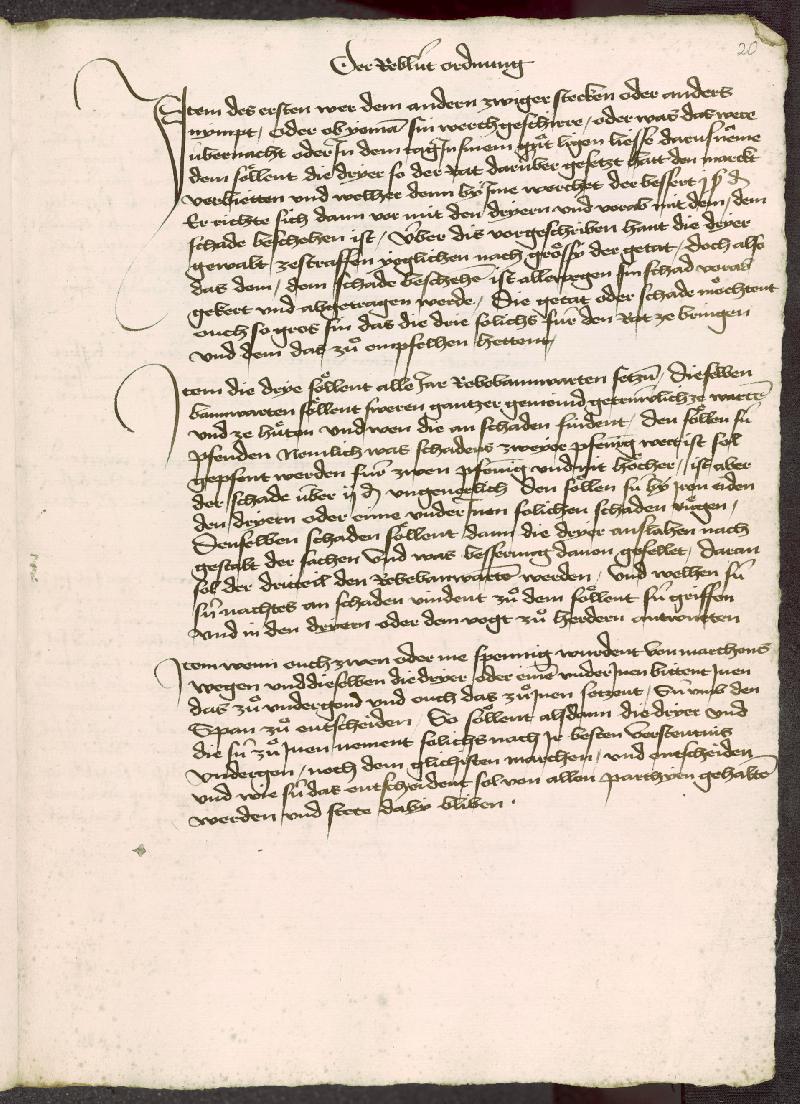 20
Der Reblüt ordnung
Item des ersten wer dem andern zwiger stecken oder anders
nympt, oder ob yemā sin werchgeschirre, oder was das were
übernacht oder Jn dem tag Jn sinem gůt ligen liesse darusneme
dem söllent die dryer so der Rat darüber gesetzt hat den marckt
verbietten vnd welher denn by Jme werchet der bessert j ß ₰
Er richte sich dann vor mit den dryern vnd vorab mit dem, dem
schade beschehen ist, Vber dis vorgeschriben hant die dryer
gewalt zestraffen yeglichen nach grössy der getat, doch also
das dem, dem schade beschehē ist allerwegen sin schad vorab
gekert vnd abgetragen werde, Die getat oder schade möchtent
ouch so gros sin das die drie solichs für den Rat ze bringen
vnd dem das zů empfelhen hettent,
Item die drye söllent alle Jar Rebebannwarten setzen, Dieselben
bannwarten söllent sweren gantzer gemeind getruwlich ze wartē
vnd ze hůten vnd wen die an schaden findent, den söllen sü
pfenden Nemlich was schadens zweyer pfennig wert ist sol
gepfent werden für zwen pfennig vnd nit höcher, ist aber
der schade über ij ₰ vngeuerlich den söllen sü by Jren eiden
den dryern oder eime vnder Jnen solichen schaden rügen,
Denselben schaden söllent dann die dryer anslahen nach
gestalt der sachen Vnd was besserung dauon gefellet, daran
sol der dritteil den Rebebanwartē werden, Vnd welhen sü
sü nachtes an schaden vindent zů dem söllent sü griffen
vnd in den dryern oder dem vogt zů herdern antwurtten
Item wenn ouch zwen oder me spennig wurdent von marchens
wegen vnd dieselben die dryer oder eine vnder Jnen bittent Jnen
das zů vndergend vnd ouch das zů Jnen setzent, Sü vmb den
Span zů entscheiden, So söllent alsdann die dryer vnd
die sü zů Jnen nement solichs nach Jr besten verstentnis
vndergen, noch dem glichsten marchen, vnd entscheiden
vnd wie sü das entscheident sol von allen parthyen gehaltē
werden vnd stete daby bliben.